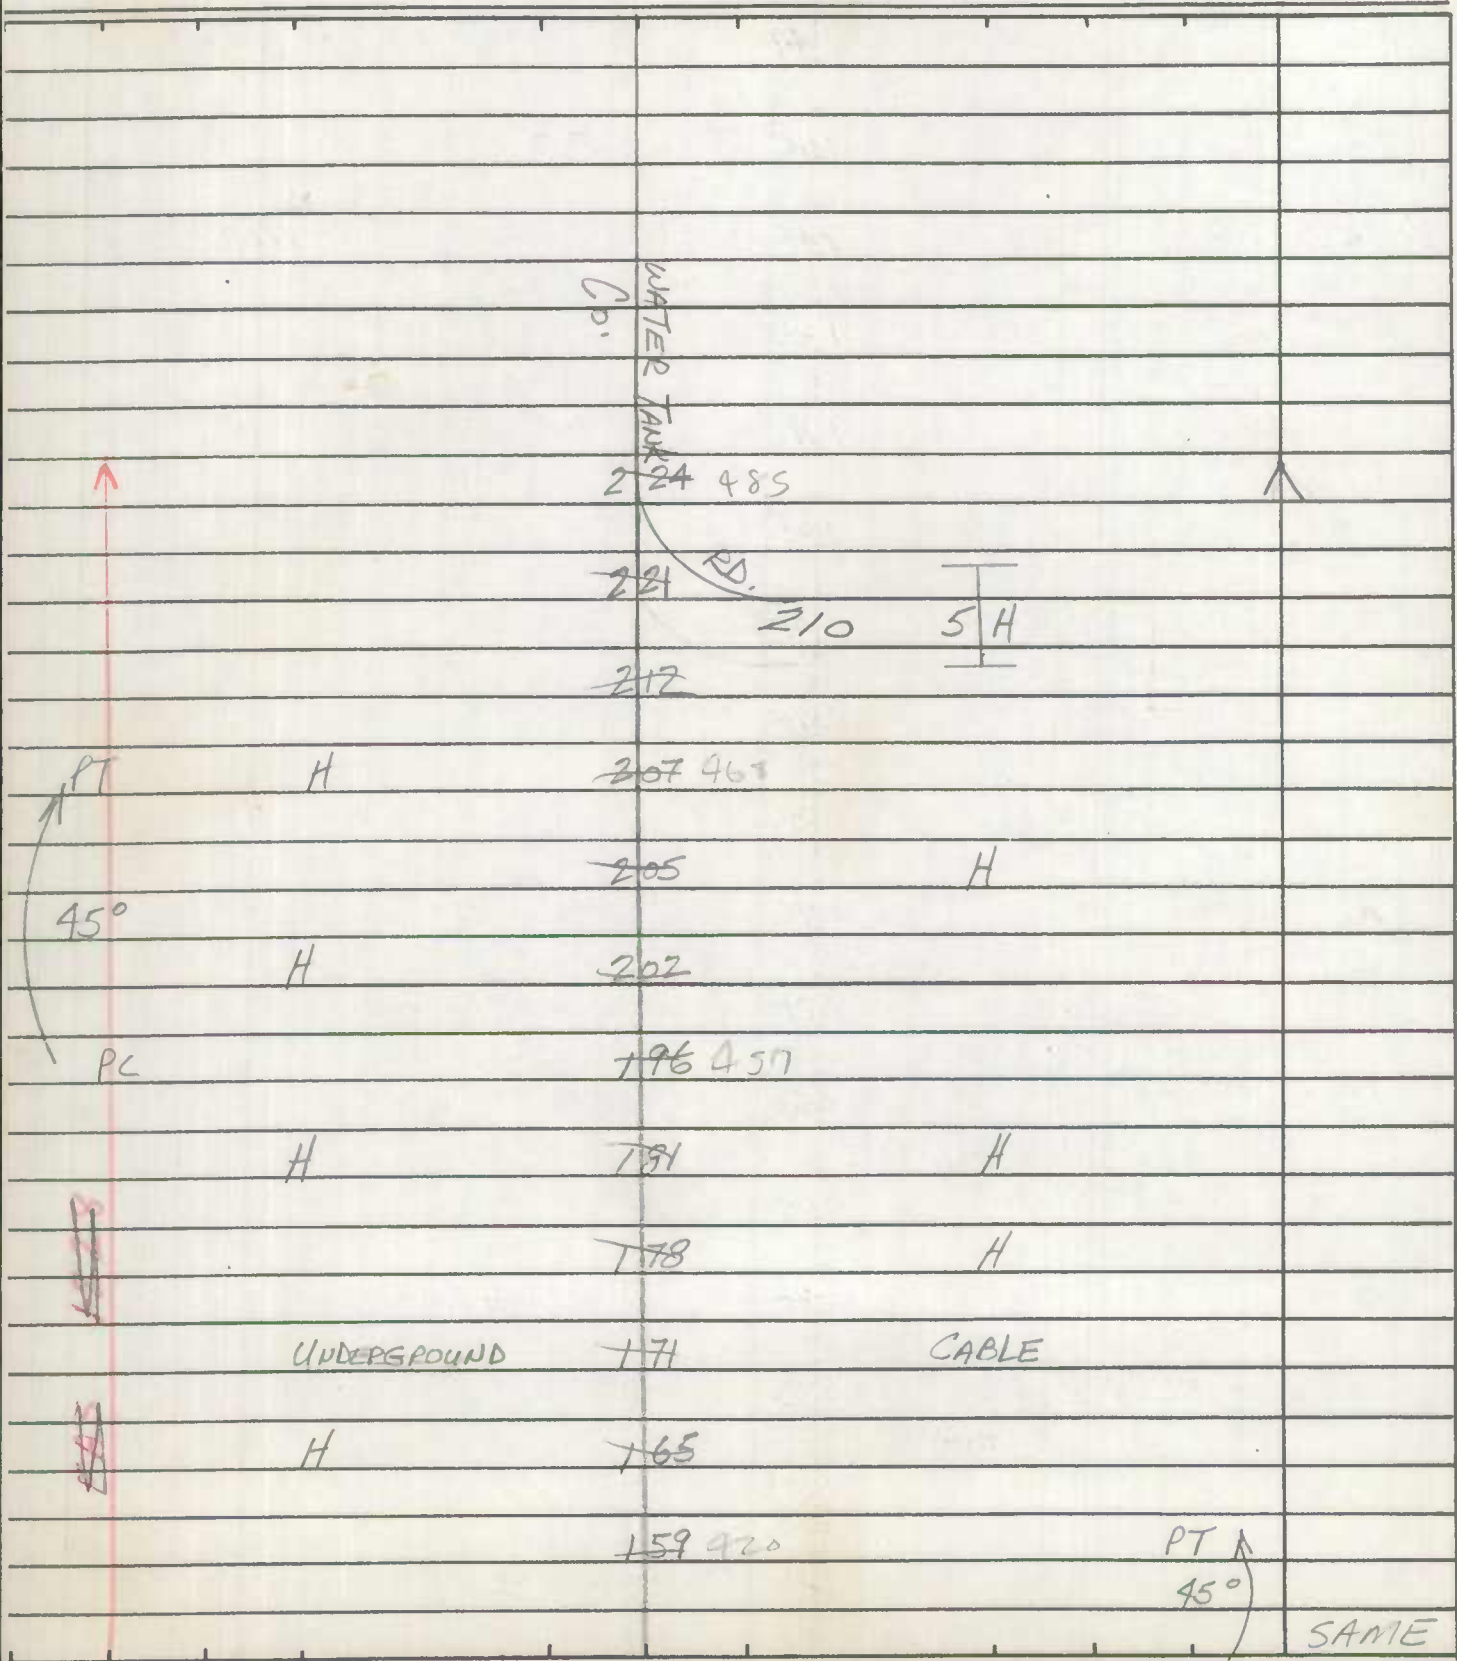 WATER TANK
Co.
224 485
RD.
221
210 5 H
212
PT H 207
205 H
45°
H 202
PC 196 457
H 181 H
178 H
UNDERGROUND 171 CABLE
H 165
159 420 PT
45°
SAME